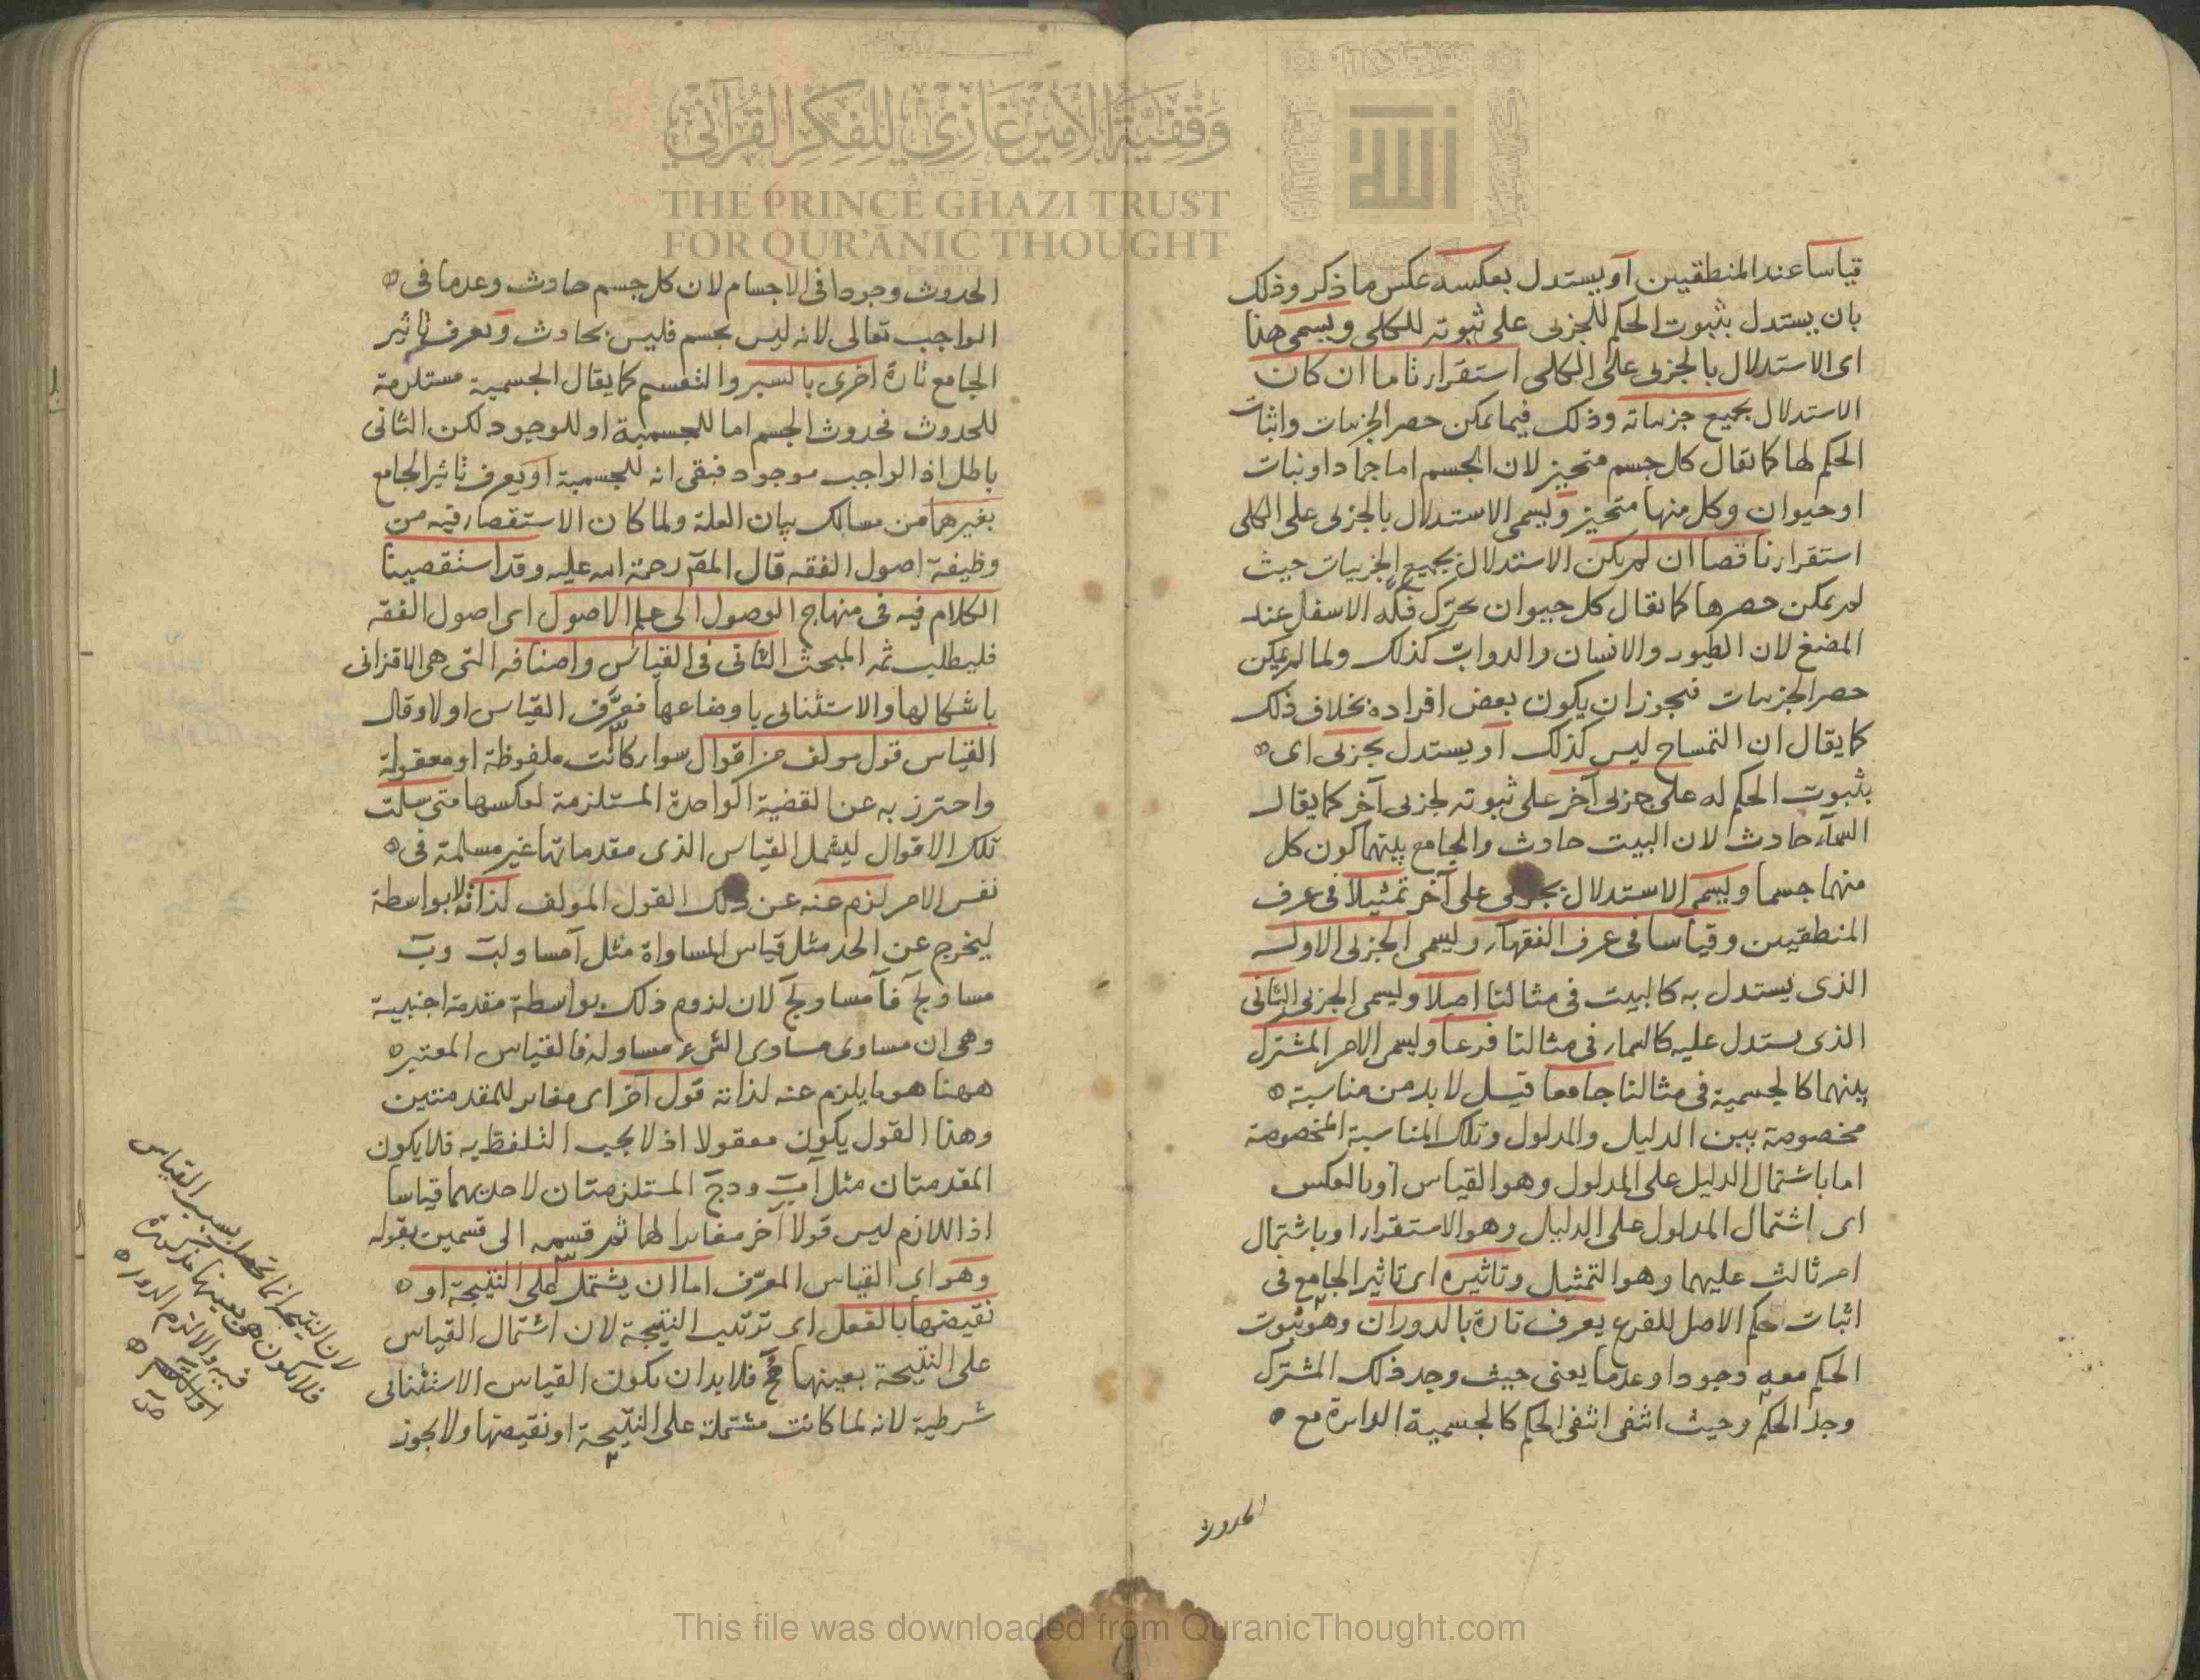 وقفية الأمير غازي للفكر القرآني
THE PRINCE GHAZI TRUST
FOR QUR'ĀNIC THOUGHT
الله
قياسا عند المنطقيين أو يستدل بعكسه عكس ما ذكر وذلك
بان يستدل بثبوت الحكم للجزئى على ثبوته للكلى ويسمى هذا
اى الاستدلال بالجزئى على الكلى استقراء تاما ان كان
الاستدلال بجميع جزئياته وذلك فيما يمكن حصر الجزئيات واثبات
الحكم لها كما يقال كل جسم متحيز لان الجسم اما جماد او نبات
او حيوان وكل منها متحيز ويسمى الاستدلال بالجزئى على الكلى
استقراء ناقصا ان لم يكن الاستدلال بجميع الجزئيات حيث
لم يمكن حصرها كما يقال كل حيوان يحرك فكه الاسفل عند
المضغ لان الطيور والانسان والدواب كذلك ولما لم يمكن
حصر الجزئيات فيجوز ان يكون بعض افراده بخلاف ذلك
كما يقال ان التمساح ليس كذلك أو يستدل بجزئى اى
بثبوت الحكم له على جزئى آخر على ثبوته لجزئى آخر كما يقال
السماء حادث لان البيت حادث والجامع بينهما كون كل
منهما جسما ويسمى الاستدلال بجزئى على آخر تمثيلا فى عرف
المنطقيين وقياسا فى عرف الفقهاء ويسمى الجزئى الاول
الذى يستدل به كالبيت فى مثالنا اصلا ويسمى الجزئى الثانى
الذى يستدل عليه كالسماء فى مثالنا فرعا ويسمى الامر المشترك
بينهما كالجسمية فى مثالنا جامعا قيل لابد من مناسبة
مخصوصة بين الدليل والمدلول وتلك المناسبة المخصوصة
اما باشتمال الدليل على المدلول وهو القياس او بالعكس
اى اشتمال المدلول على الدليل وهو الاستقراء او باشتمال
امر ثالث عليهما وهو التمثيل وتاثيره اى تاثير الجامع فى
اثبات حكم الاصل للفرع يعرف تارة بالدوران وهو ثبوت
الحكم معه وجودا وعدما يعنى حيث وجد ذلك المشترك
وجد الحكم وحيث انتفى انتفى الحكم كالجسمية الدائرة مع
الحدوث
الحدوث وجودا فى الاجسام لان كل جسم حادث وعدما فى
الواجب تعالى لانه ليس بجسم فليس بحادث ويعرف تاثير
الجامع تارة اخرى بالسبر والتقسيم كما يقال الجسمية مستلزمة
للحدوث فحدوث الجسم اما للجسمية او للوجود لكن الثانى
باطل اذ الواجب موجود فبقى انه للجسمية او يعرف تاثير الجامع
بغيرهما من مسالك بيان العلة ولما كان الاستقصاء فيه من
وظيفة اصول الفقه قال المص رحمة الله عليه وقد استقصينا
الكلام فيه فى منهاج الوصول الى علم الاصول اى اصول الفقه
فليطلب ثمه المبحث الثانى فى القياس واصنافه التى هى الاقترانى
باشكالها والاستثنائى باوضاعها فعرّف القياس اولا وقال
القياس قول مولف من اقوال سواء كانت ملفوظة او معقولة
واحترز به عن القضية الواحدة المستلزمة لعكسها متى سلمت
تلك الاقوال ليشمل القياس الذى مقدماتها غير مسلمة فى
نفس الامر لزم عنه عن ذلك القول المولف لذاته لا بواسطة
ليخرج عن الحد مثل قياس المساواة مثل آ مساو لب وب
مساو لج فآ مساو لج لان لزوم ذلك بواسطة مقدمة اجنبية
وهى ان مساوى مساوى الشىء مساو له فالقياس المعتبر
ههنا هو ما يلزم عنه لذاته قول آخر اى مغاير للمقدمتين
وهذا القول يكون معقولا اذ لا يجب التلفظ به فلا يكون
المقدمتان مثل آب ودج المستلزمتان لاحديهما قياسا
اذ اللازم ليس قولا آخر مغايرا لها ثم قسمه الى قسمين بقوله
وهو اى القياس المعرّف اما ان يشتمل على النتيجة او
نقيضها بالفعل اى ترتيب النتيجة لان اشتمال القياس
على النتيجة بعينها مح فلابد ان يكون القياس الاستثنائى
شرطية لانه لما كانت مشتملة على النتيجة او نقيضها ولا يجوز
لان النتيجة انما تحصل بسبب القياس
فلا يكون هى بعينها مذكورة
فيه والا لزم الدور
This file was downloaded from QuranicThought.com